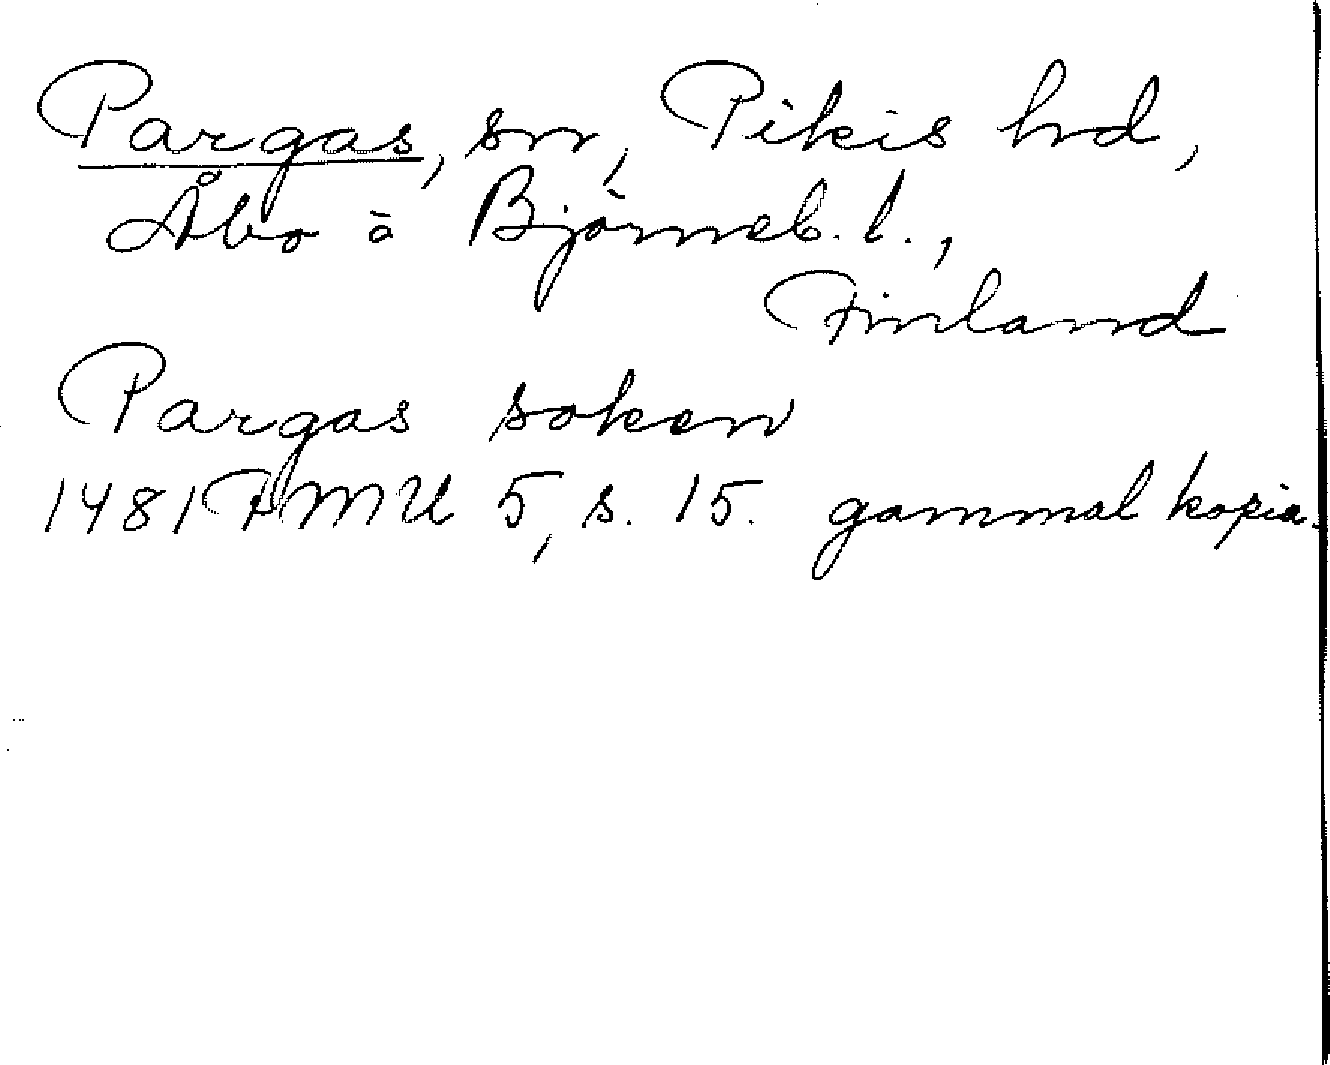 Pargas, sn, Pikis hrd,
Åbo o Björneb. l.,
Finland
Pargas soken
1481 FMU 5, s. 15. gammal kopia.